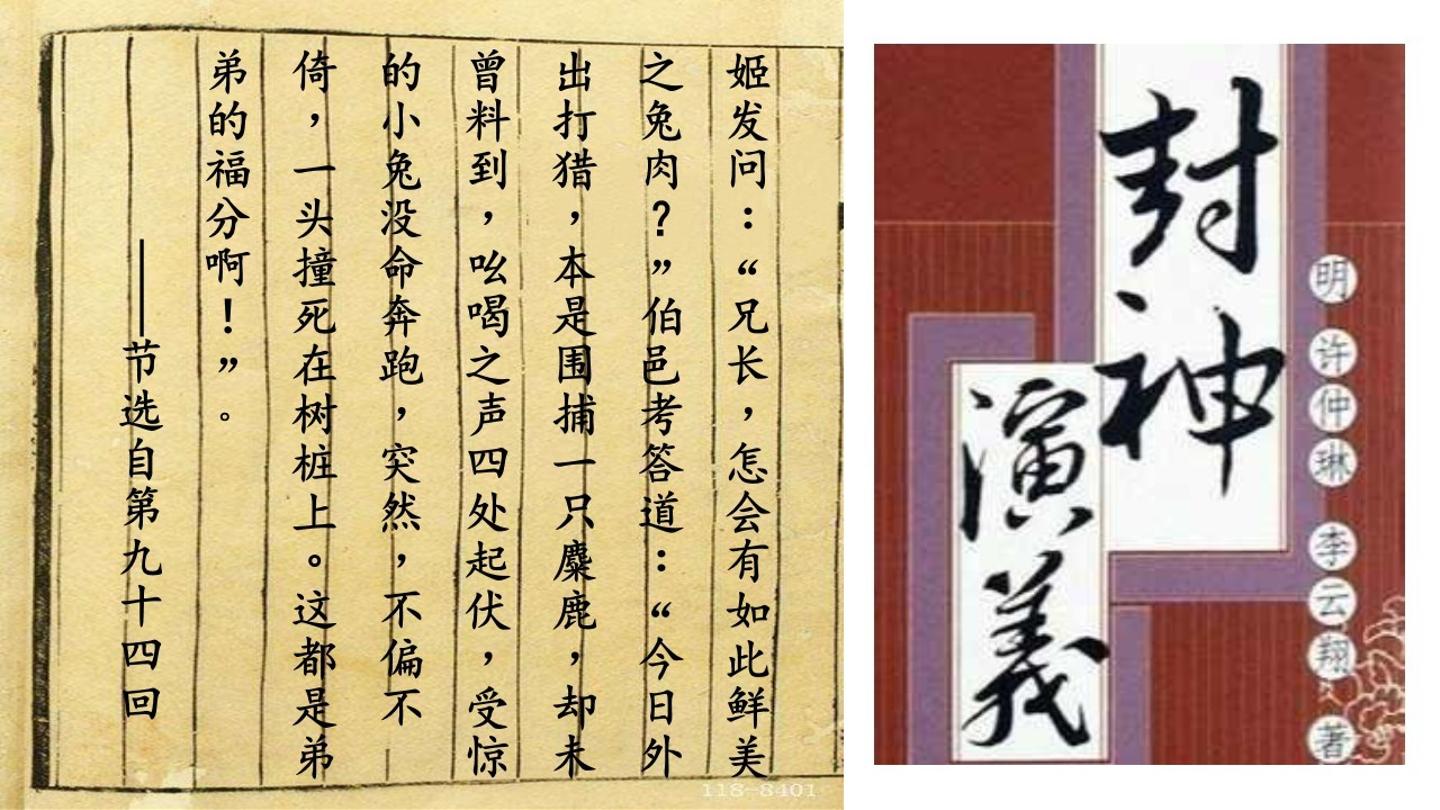 姬发问：“兄长，怎会有如此鲜美
之兔肉？”伯邑考答道：“今日外
出打猎，本是围捕一只麋鹿，却未
曾料到，吆喝之声四处起伏，受惊
的小兔没命奔跑，突然，不偏不
倚，一头撞死在树桩上。这都是弟
弟的福分啊！”。
——节选自第九十四回
118-8401
封神
演義
明 许仲琳 李云翔 著